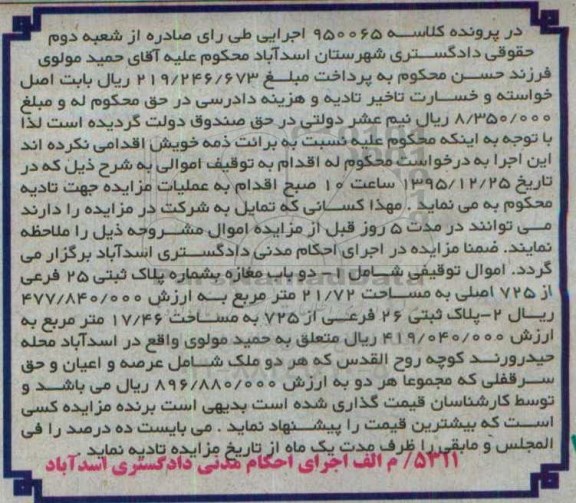 در پرونده کلاسه ۹۵۰۰۶۵ اجرایی طی رای صادره از شعبه دوم
حقوقی دادگستری شهرستان اسدآباد محکوم علیه آقای حمید مولوی
فرزند حسن محکوم به پرداخت مبلغ ۲۱۹/۲۴۶/۶۷۳ ریال بابت اصل
خواسته و خسارت تاخیر تادیه و هزینه دادرسی در حق محکوم له و مبلغ
۸/۳۵۰/۰۰۰ ریال نیم عشر دولتی در حق صندوق دولت گردیده است لذا
با توجه به اینکه محکوم علیه نسبت به برائت ذمه خویش اقدامی نکرده اند
این اجرا به درخواست محکوم له اقدام به توقیف اموالی به شرح ذیل که در
تاریخ ۱۳۹۵/۱۲/۲۵ ساعت ۱۰ صبح اقدام به عملیات مزایده جهت تادیه
محکوم به می نماید . مهذا کسانی که تمایل به شرکت در مزایده را دارند
می توانند در مدت ۵ روز قبل از مزایده اموال مشروحه ذیل را ملاحظه
نمایند. ضمنا مزایده در اجرای احکام مدنی دادگستری اسدآباد برگزار می
گردد. اموال توقیفی شامل ۱- دو باب مغازه بشماره پلاک ثبتی ۲۵ فرعی
از ۷۲۵ اصلی به مساحت ۲۱/۷۲ متر مربع به ارزش ۴۷۷/۸۴۰/۰۰۰
ریال ۲-پلاک ثبتی ۲۶ فرعی از ۷۲۵ به مساحت ۱۷/۴۶ متر مربع به
ارزش ۴۱۹/۰۴۰/۰۰۰ ریال متعلق به حمید مولوی واقع در اسدآباد محله
حیدرورند کوچه روح القدس که هر دو ملک شامل عرصه و اعیان و حق
سرقفلی که مجموعا هر دو به ارزش ۸۹۶/۸۸۰/۰۰۰ ریال می باشد و
توسط کارشناسان قیمت گذاری شده است بدیهی است برنده مزایده کسی
است که بیشترین قیمت را پیشنهاد نماید . می بایست ده درصد را فی
المجلس و مابقی را ظرف مدت یک ماه از تاریخ مزایده تادیه نماید
۵۳۱۱/ م الف اجرای احکام مدنی دادگستری اسدآباد